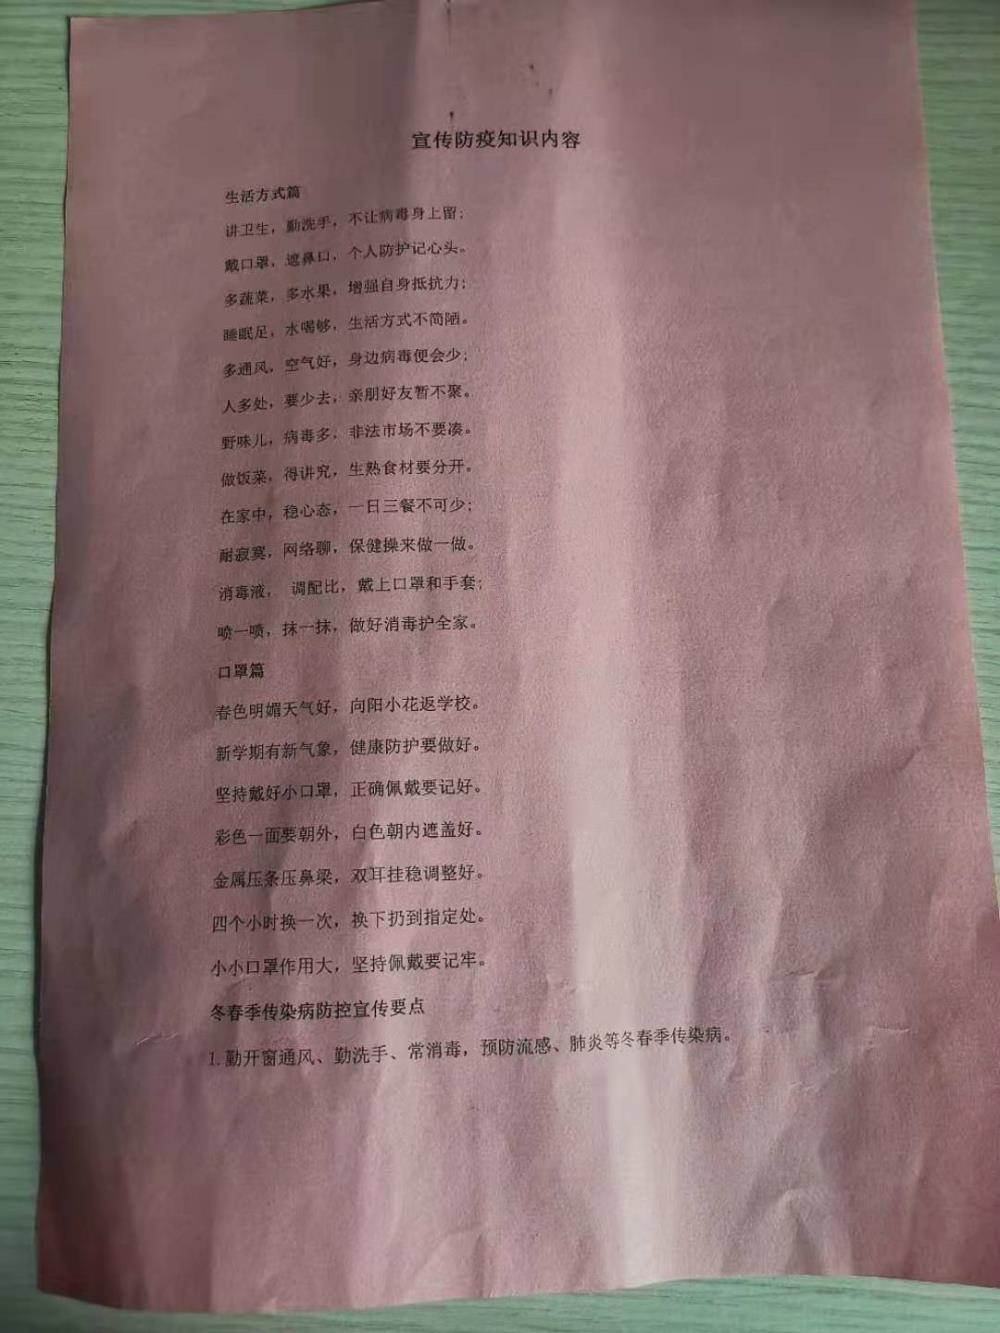 宣传防疫知识内容
生活方式篇
讲卫生，勤洗手，不让病毒身上留；
戴口罩，遮鼻口，个人防护记心头。
多蔬菜，多水果，增强自身抵抗力；
睡眠足，水喝够，生活方式不简陋。
多通风，空气好，身边病毒便会少；
人多处，要少去，亲朋好友暂不聚。
野味儿，病毒多，非法市场不要凑。
做饭菜，得讲究，生熟食材要分开。
在家中，稳心态，一日三餐不可少；
耐寂寞，网络聊，保健操来做一做。
消毒液， 调配比，戴上口罩和手套；
喷一喷，抹一抹，做好消毒护全家。
口罩篇
春色明媚天气好，向阳小花返学校。
新学期有新气象，健康防护要做好。
坚持戴好小口罩，正确佩戴要记好。
彩色一面要朝外，白色朝内遮盖好。
金属压条压鼻梁，双耳挂稳调整好。
四个小时换一次，换下扔到指定处。
小小口罩作用大，坚持佩戴要记牢。
冬春季传染病防控宣传要点
1.勤开窗通风、勤洗手、常消毒，预防流感、肺炎等冬春季传染病。